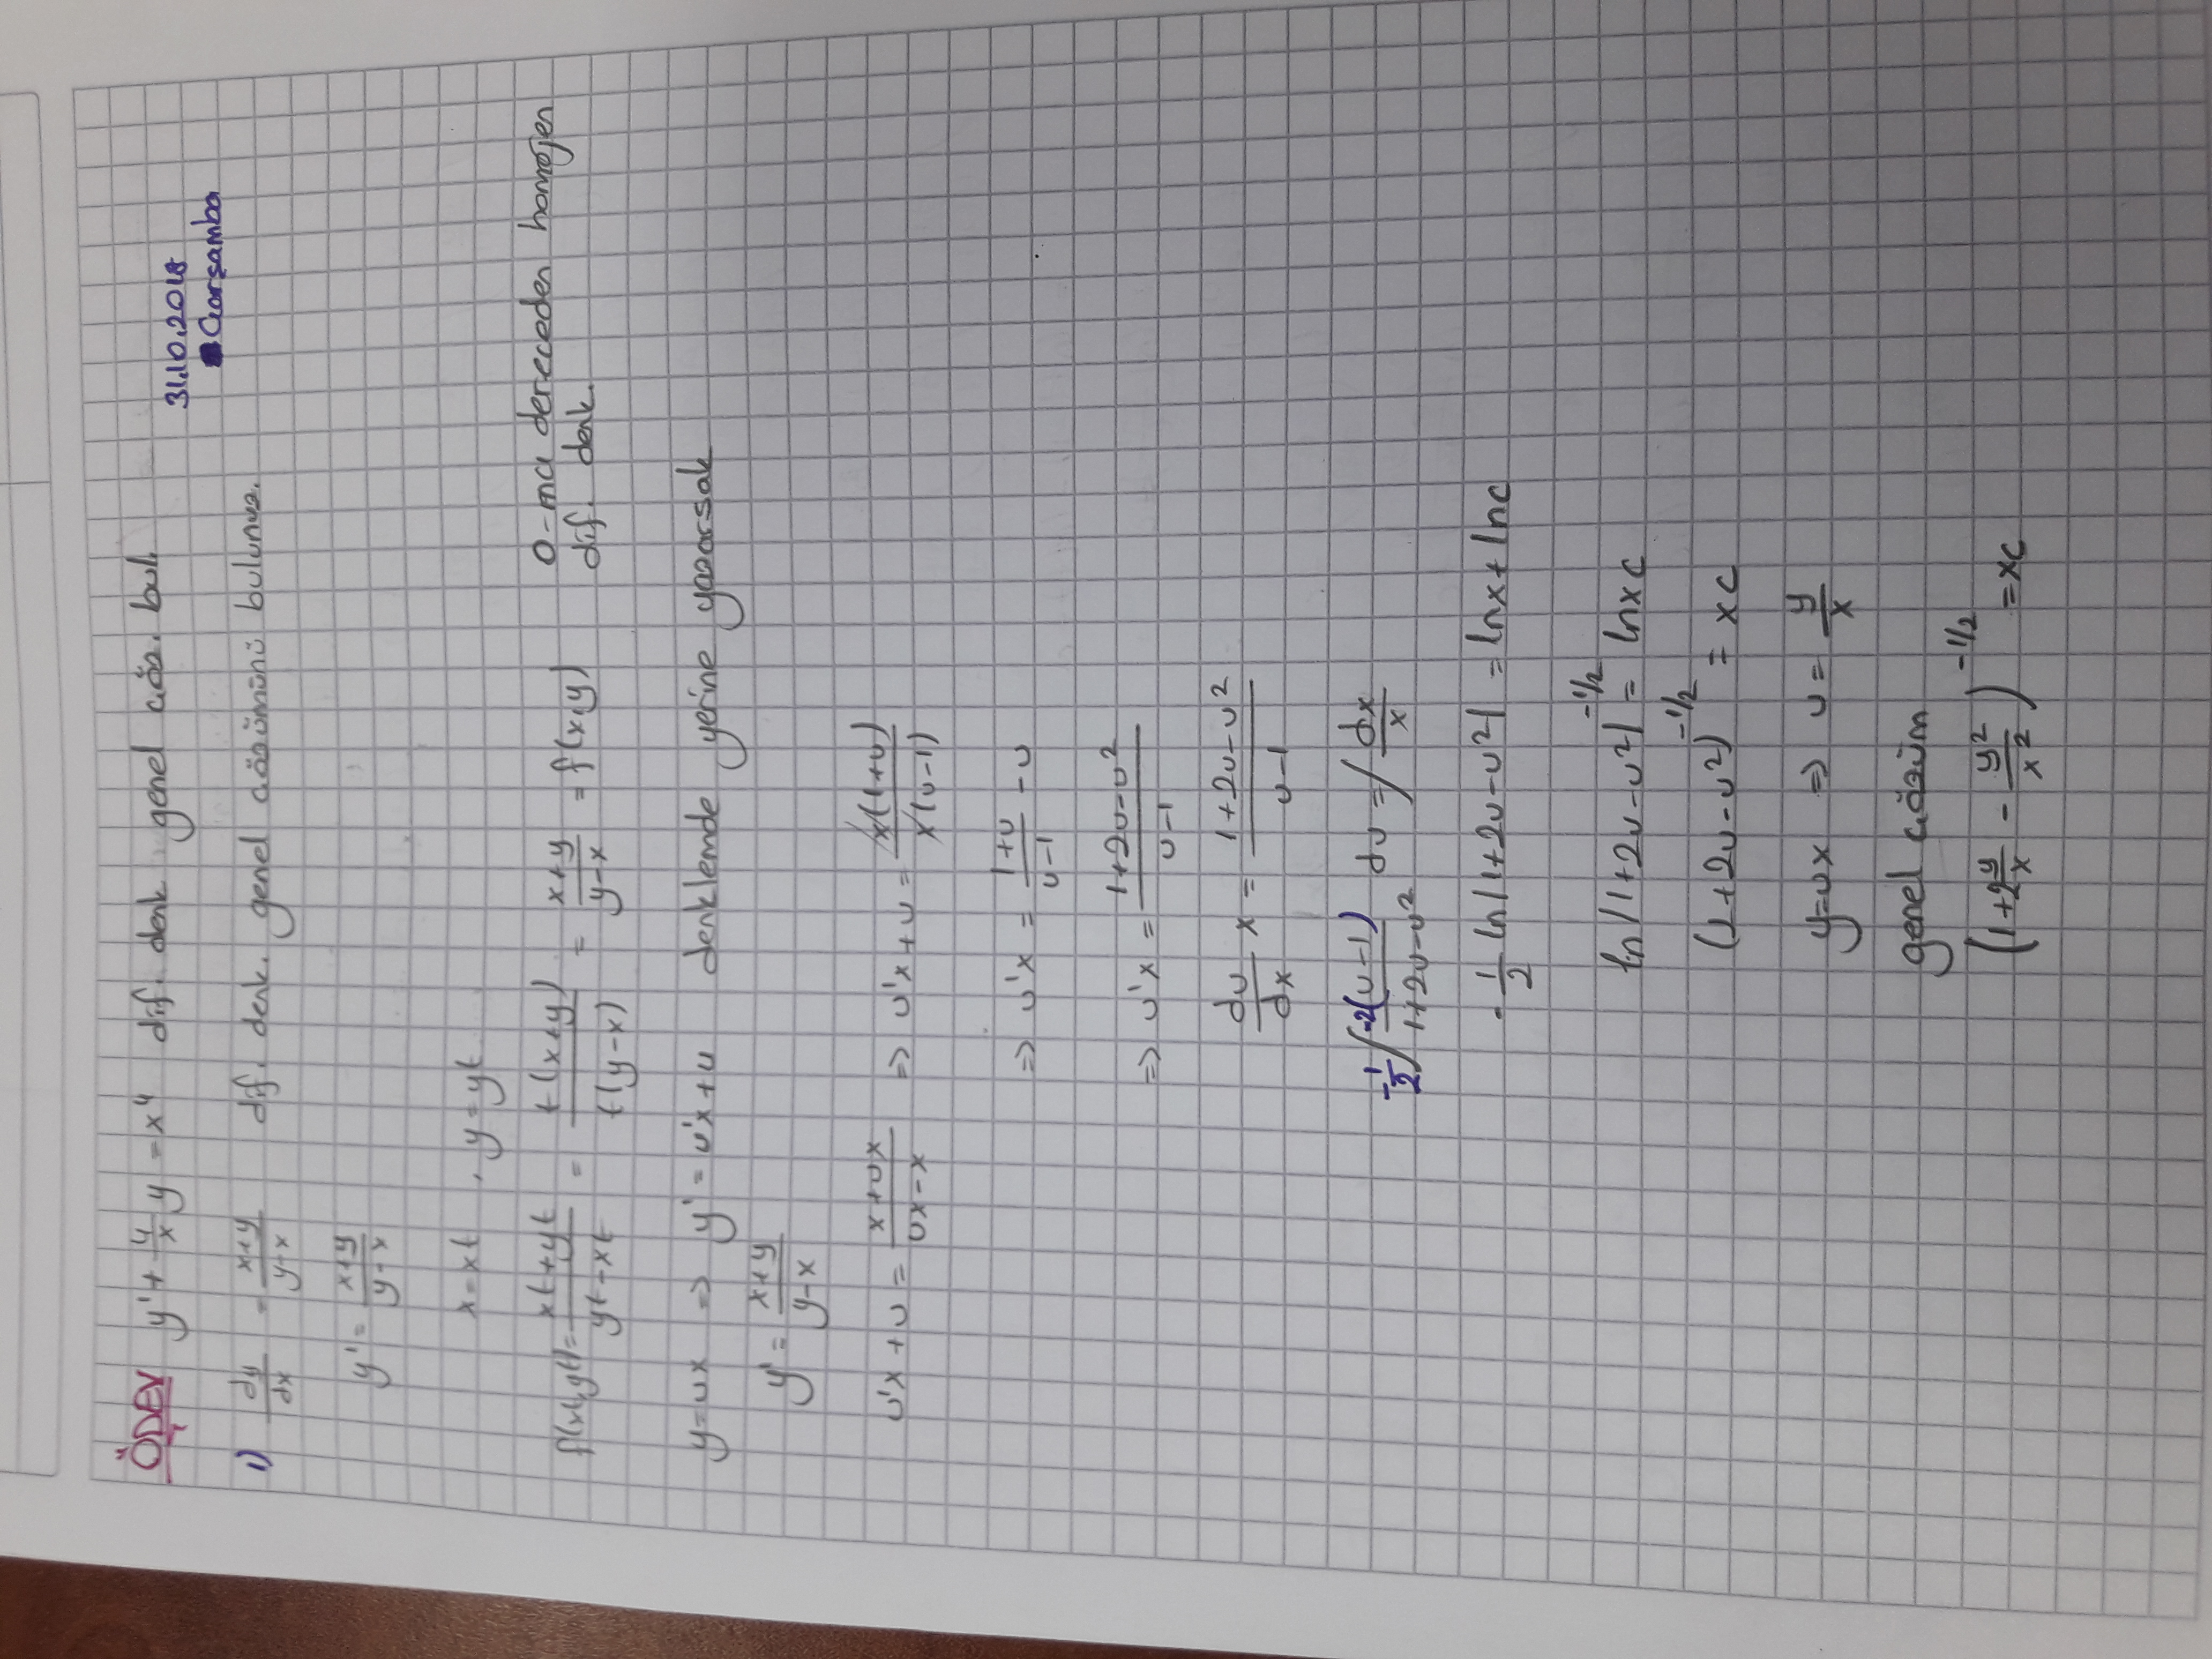 ÖDEV y' + 4/x y = x⁴ dif. denk genel çöz. bul.
31.10.2018
Çarşamba
1) dy/dx = x+y/y-x dif. denk. genel çözümünü bulunuz.
y' = x+y/y-x
x=xt , y=yt
f(xt,yt) = xt+yt/yt-xt = t(x+y)/t(y-x) = x+y/y-x = f(x,y) 0-ıncı dereceden homojen
dif. denk.
y=ux => y' = u'x+u denklemde yerine yazarsak
y' = x+y/y-x
u'x+u = x+ux/ux-x => u'x+u = x(1+u)/x(u-1)
=> u'x = 1+u/u-1 - u
=> u'x = 1+2u-u²/u-1
du/dx x = 1+2u-u²/u-1
-1/2 ∫ -2(u-1)/1+2u-u² du = ∫ dx/x
-1/2 ln|1+2u-u²| = lnx+lnc
ln|1+2u-u²|^-1/2 = lnxc
(1+2u-u²)^-1/2 = xc
y=ux => u = y/x
genel çözüm
(1+2y/x - y²/x²)^-1/2 = xc